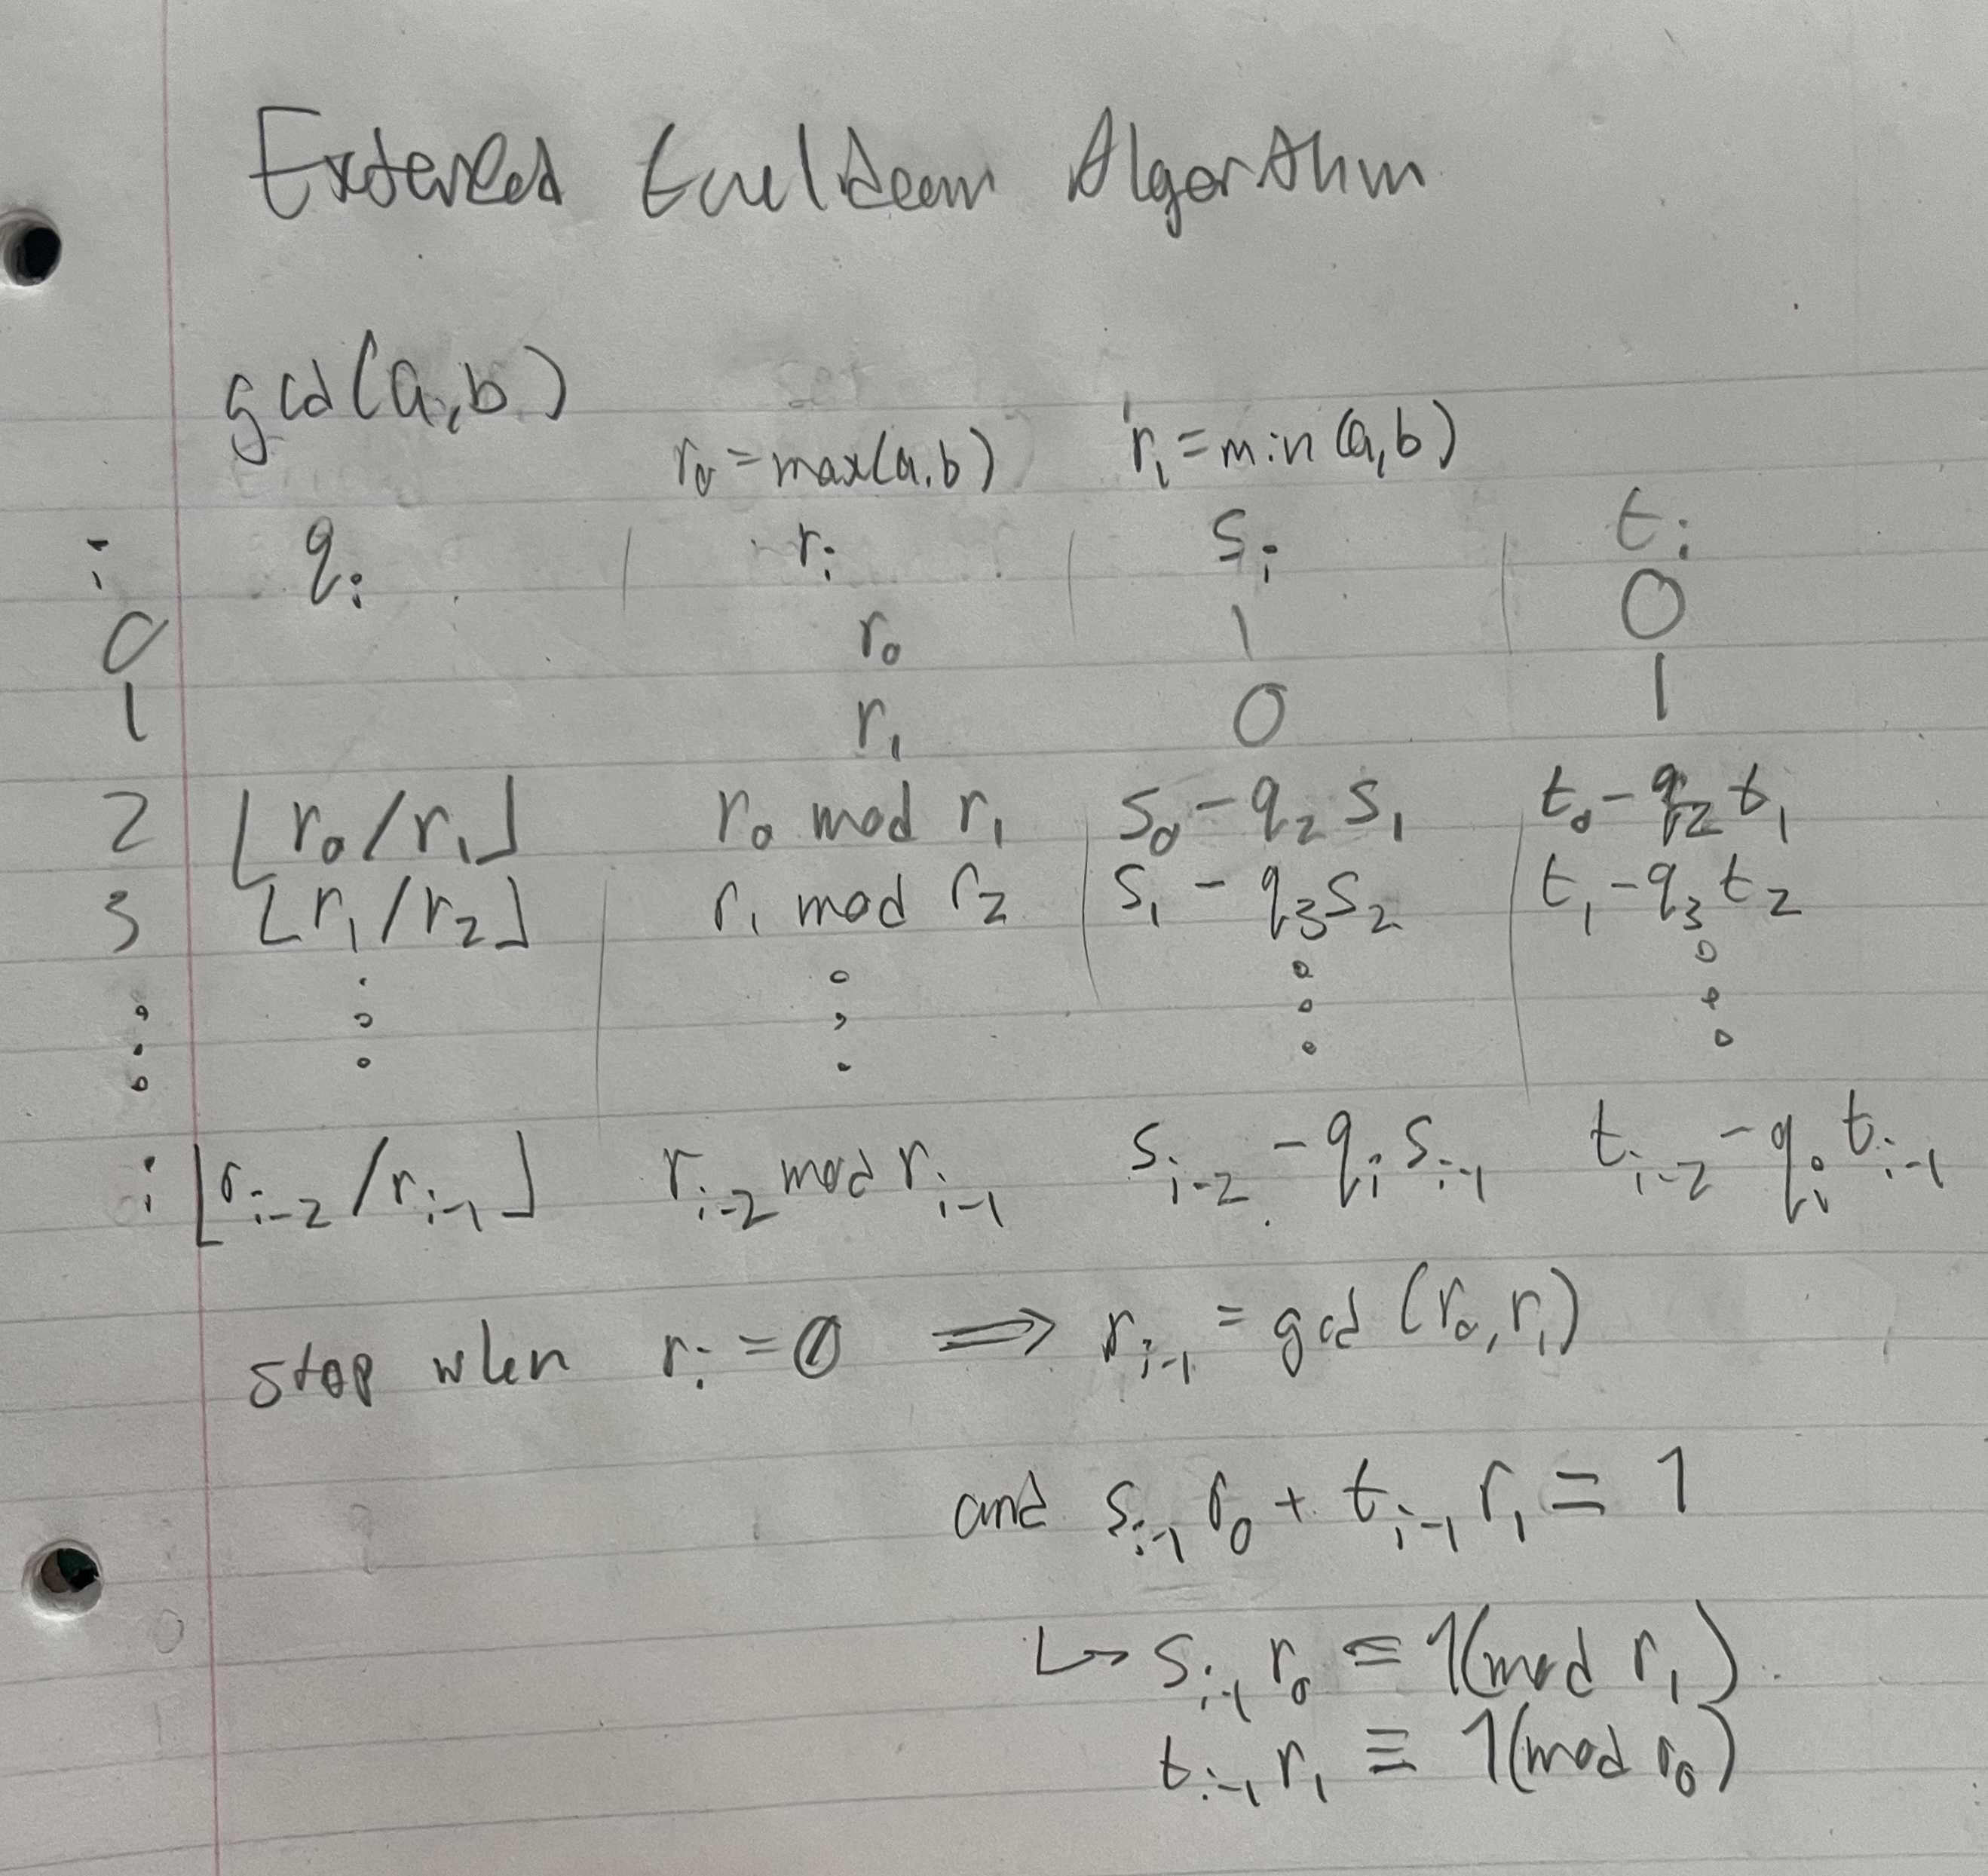 Extended Euclidean Algorithm
gcd(a,b)
r₀ = max(a,b) r₁ = min(a,b)
i qᵢ rᵢ sᵢ tᵢ
0 r₀ 1 0
1 r₁ 0 1
2 ⌊r₀/r₁⌋ r₀ mod r₁ s₀ - q₂ s₁ t₀ - q₂ t₁
3 ⌊r₁/r₂⌋ r₁ mod r₂ s₁ - q₃s₂ t₁ - q₃t₂
⋮ ⋮ ⋮ ⋮ ⋮
i ⌊rᵢ₋₂/rᵢ₋₁⌋ rᵢ₋₂ mod rᵢ₋₁ sᵢ₋₂ - qᵢ sᵢ₋₁ tᵢ₋₂ - qᵢ tᵢ₋₁
stop when rᵢ = 0 ⟹ rᵢ₋₁ = gcd (r₀, r₁)
and sᵢ₋₁ r₀ + tᵢ₋₁ r₁ = 1
↳ sᵢ₋₁ r₀ ≡ 1(mod r₁)
tᵢ₋₁ r₁ ≡ 1(mod r₀)